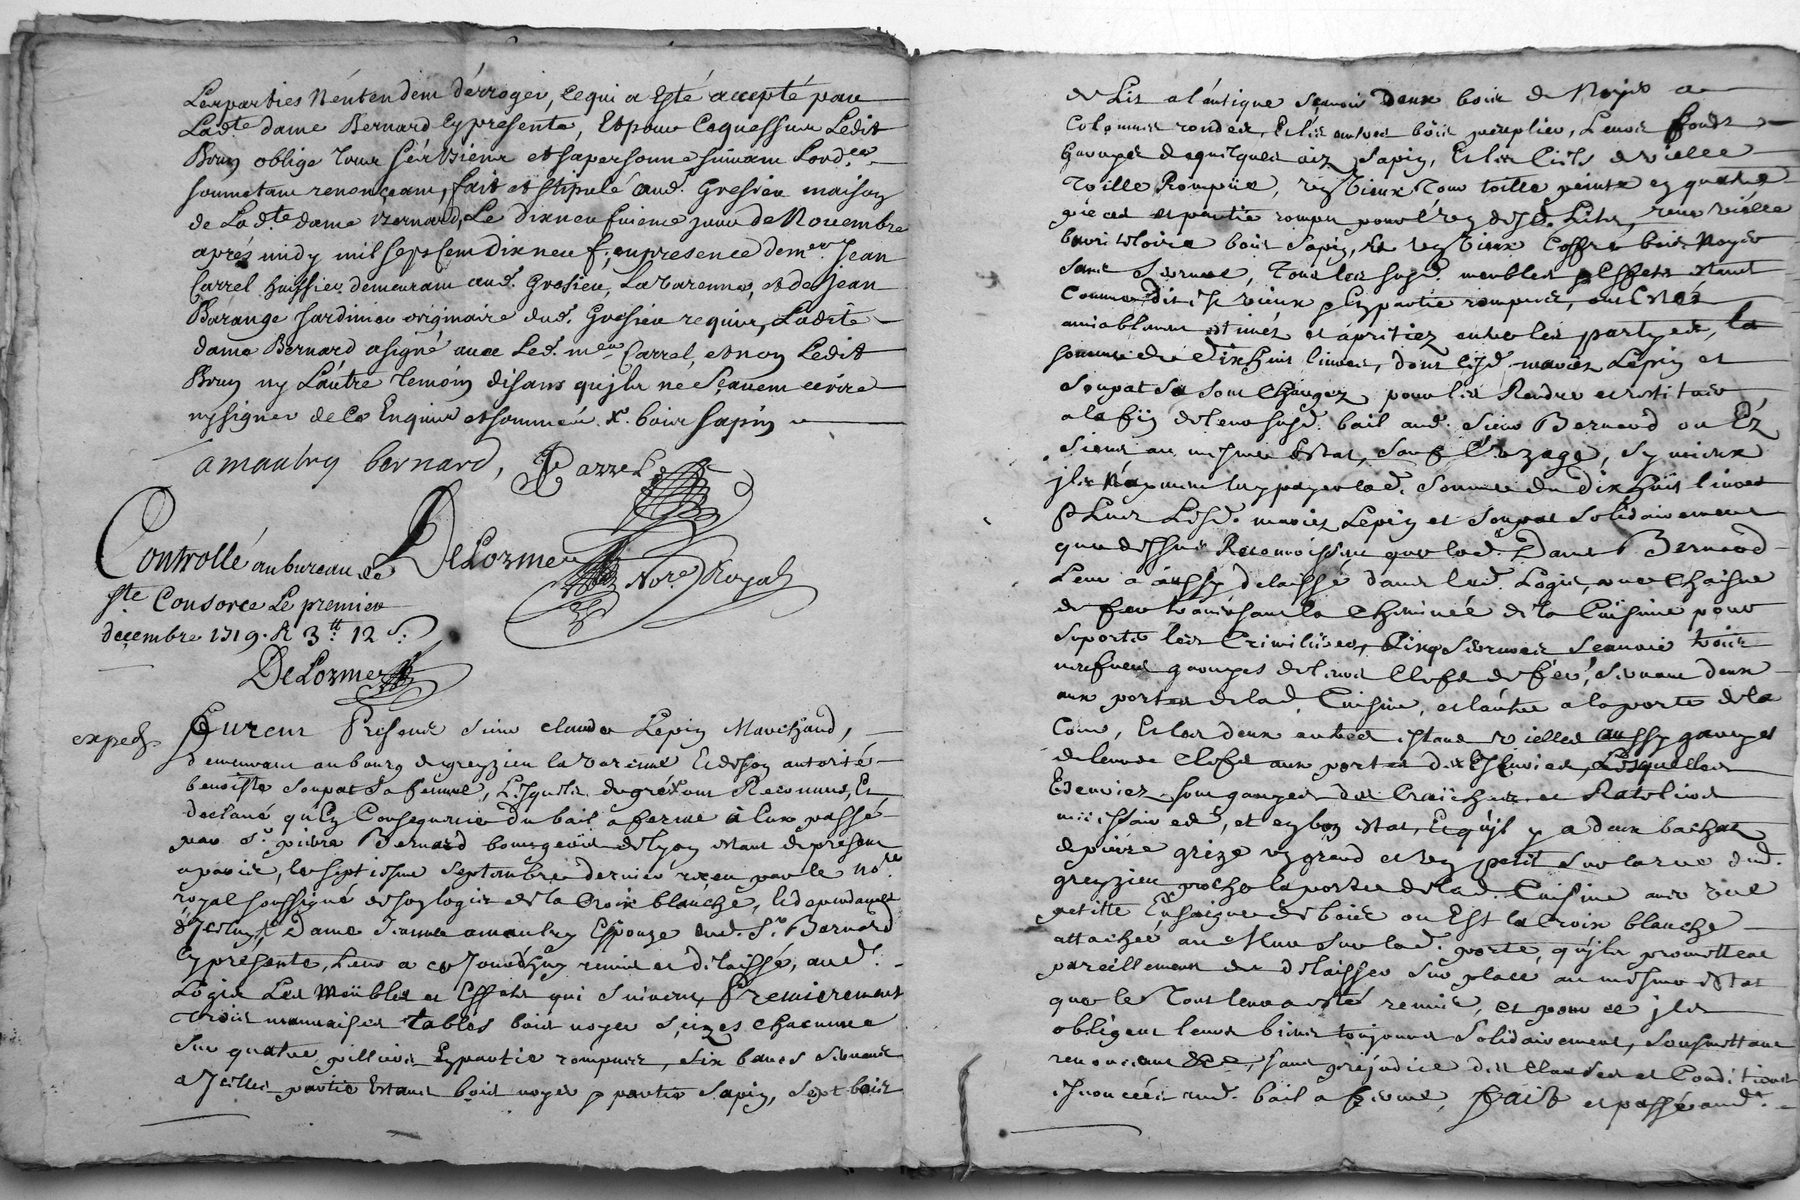 Lesparties N'entendent dérroger, cequi a Esté accepté par
Lad.te dame Bernard Cy presente, Et pour Cequessus Ledit
Brun oblige tous sés biens et sa personne suivant Lord.ce
soumetant renonçeant, fait et stipulé aud. Gresieu maison
de Lad.te dame Bernard, Le dixneufiéme jour de Novembre
aprés midy mil sept Cent dix neuf, en presence de m.re Jean
Carrel huissier demeurant aud. Gresieu, La varenne, et de jean
Barange Jardinier originaire dud. Gresieu requis, Ladite
dame Bernard a signé avec Led. m.re Carrel, et non Ledit
Brun ny L'autre temoin disans qu'jls ne sçavent ecrire
ny signer de Ce Enquis et sommés x. bois sapin
amaulry bernard, Carrel
DeLorme
No.re Royal
Controllé au bureau de
S.te Consorce Le premier
decembre 1719. R 3.tt 12 s.
DeLorme
exped.
Furent Presens sieur claude Lepin Marchand,
demeurant au bourg de greyzieu la varenne Et de son autorité
benoiste Soupat Sa femme, Lesquels de gré ont Reconnu, Et
declaré qu'En Consequence du bail a ferme à Eux passé
par S.r pierre Bernard bourgeois de lyon estant de present
a paris, le septiesme Septembre dernier receu par le No.re
royal soussigné de son logis de la Croix blanche, & dependances
d'Jcelluy, Dame Jeanne amaulry Espouze dud. S.r Bernard
Cy presente, Leur a ce Jourd'huy remis et délaissé, aud.
Logis Les Meubles et Effets qui suivent, Premierement
trois mauvaises tables bois noyer assizes chacunne
sur quatre pilliers En partie rompues, six bancs servant
a Jcelles partie Estant bois noyer & partie Sapin, Sept bois
de Lit a l'antique sçavoir deux bois de Noyer a
Colonnes rondes, Et les autres bois peuplier, Leurs fonds
garnys de quelques aix Sapin, Et les Ciels de vielle
Toille Rompüe, un vieux Tour toille peinte en quatre
pieces et partie rompu pour l'un desd. Lits, une vielle
bois Sapin, Et un vieux Coffre bois Noyer
sans serrure, Tous lesd. susd. meubles & Effets estant
Comme dit est vieux & En partie rompus, ont Estés
amiablement estimés et apretiez entre les partyes, la
somme de Dixhuit livres, dont lesd. mariés Lepin et
Soupat Se sont Chargez pour les Rendre et restituer
a la fin de leur susd. bail aud. Sieur Bernard ou Ez
Siens au mesme Estat, sauf l'uzage, sy mieux
jls N'ayment luy payer lad. Somme de Dixhuit livres
& plus Lesd. mariés Lepin et Soupat Solidairement
que dessus Reconnoissent que lad. Dame Bernard
Leur a aussy delaissé dans led. Logis, une Chaisne
de fer traversant la Cheminée de la Cuisine pour
suporter les Crimilieres, Cinq Serrures Sçavoir trois
neufves garnyes de leurs Clefs de fer, Servant deux
aux portes de lad. Cuisine, et l'autre a la porte de la
Cour, Et les deux autres estant vielles aussy garnyes
de leurs Clefs aux portes des Escuries, Lesquelles
Escuries sont garnyes des Craiches et Rateliers
necessaires, et en bon estat, Et qu'il y a deux bachat
de pierre grize un grand et un petit sur la rue dud.
greyzieu proche la porte de lad. Cuisine avec une
petitte Ensaigne de bois ou Est la Croix blanche
attachée au Mur sur lad. porte, qu'jls promettent
pareillement de delaisser sur place au mesme Estat
que le Tout leur a esté remis, et pour ce jls
obligent leurs biens toujours Solidairement, Soumettant
renonceant &c.a, sans préjudice des clauses et Conditions
enoncées aud. bail a ferme, fait et passé aud.